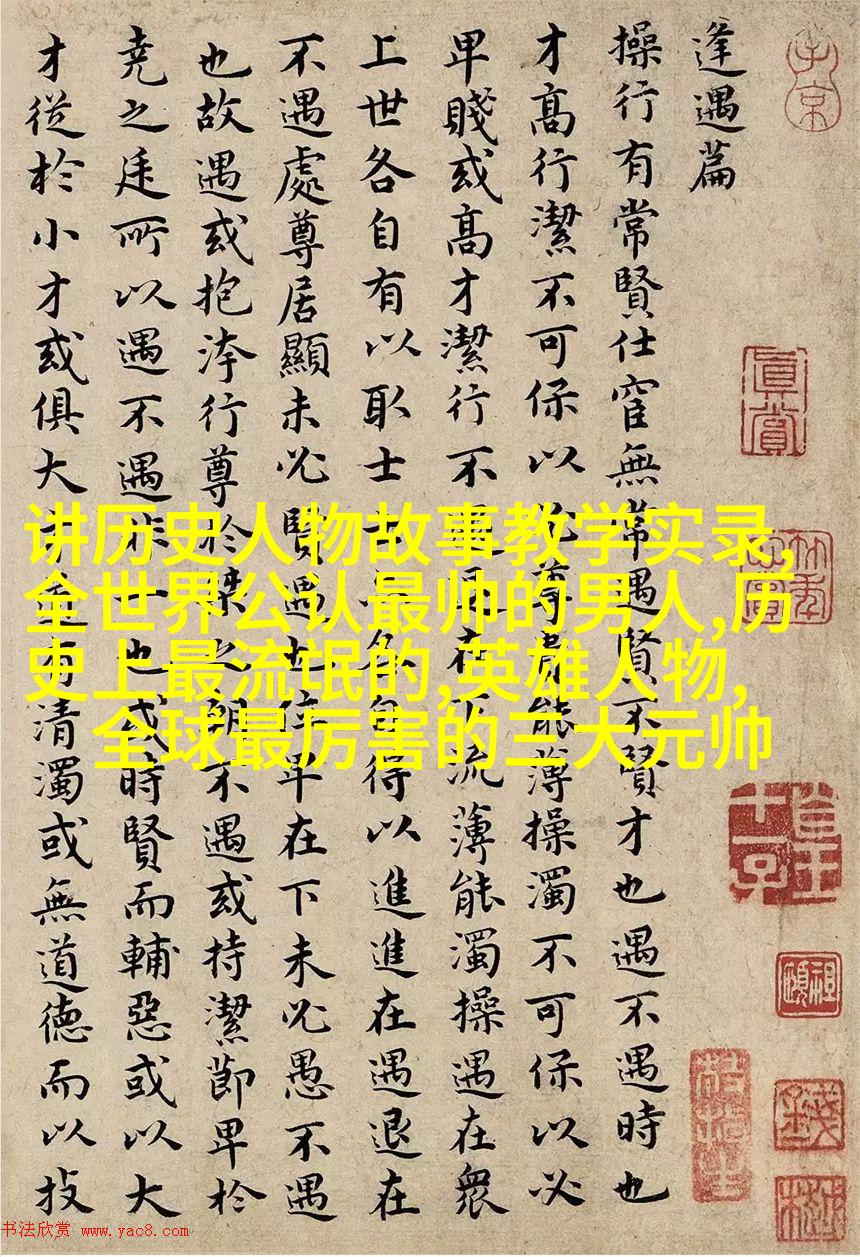 逢遇篇
操行有常賢仕宦無常遇賢不賢才也遇不遇時也
才高行潔不可保以必尊貴能薄操濁不可保以必
卑賤或高才潔行不遇退在下流薄能濁操遇在衆
上世各自有以取士士亦各自得以進進在遇退在
不遇處尊居顯未必賢遇也位卑在下未必愚不遇
也故遇或抱洿行尊於桀之朝不遇或持潔節卑於
堯之廷所以遇不遇非一也或時賢而輔惡或以大
才從於小才或俱大才道有清濁或無道德而以技
真賞
讲历史人物故事教学实录,
全世界公认最帅的男人,历
史上最流氓的,英雄人物,
全球最厉害的三大元帅
书法欣赏 www.yac8.com